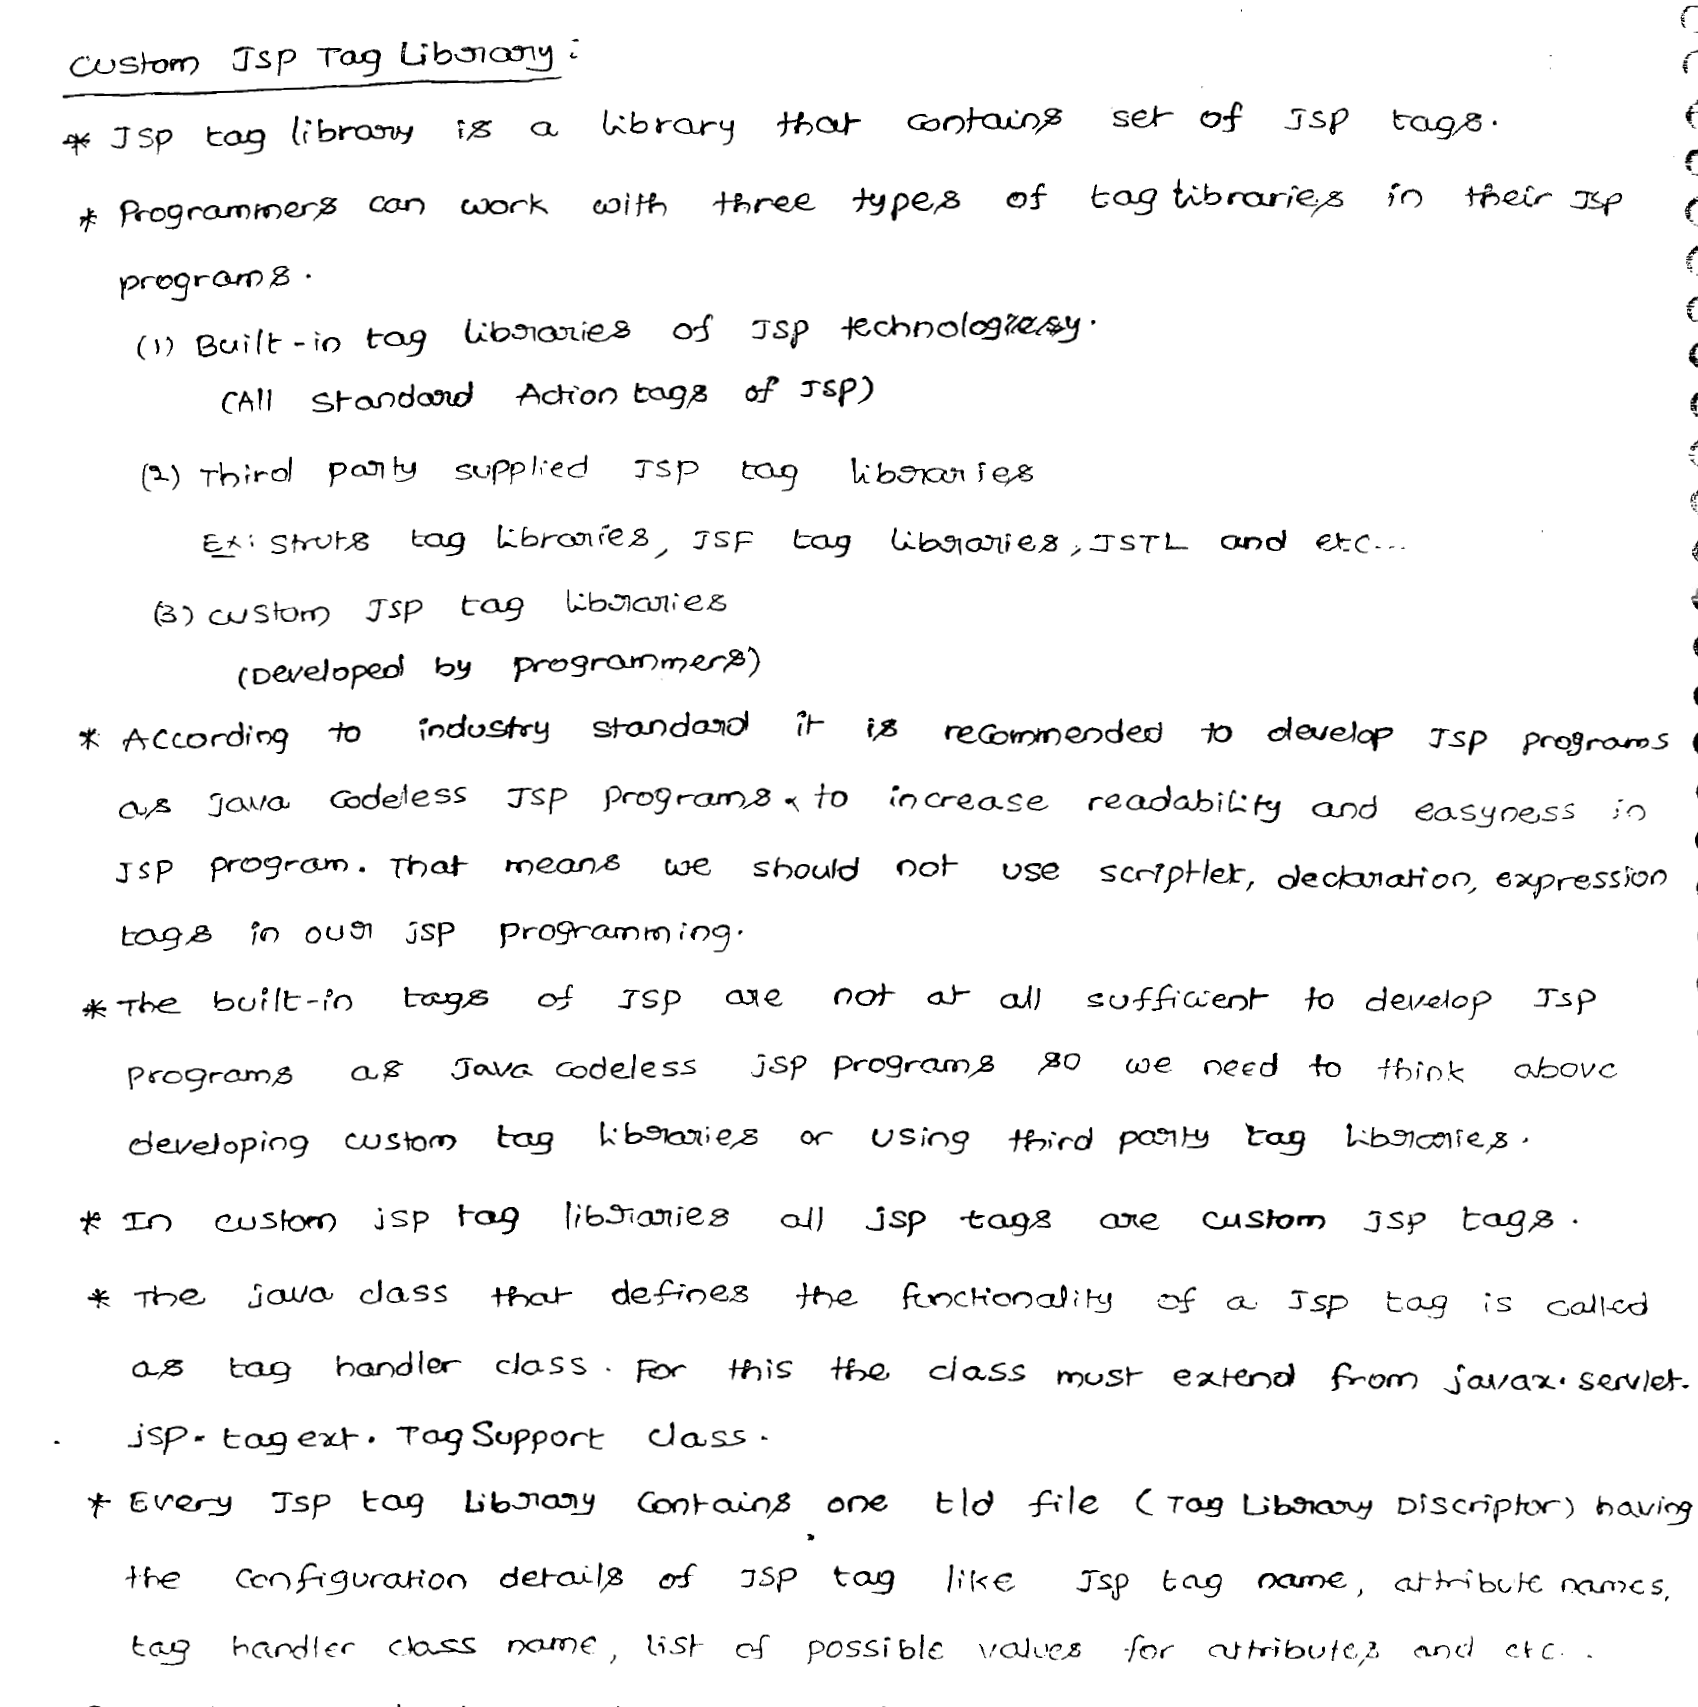 Custom JSP Tag Library :
* JSP tag library is a library that contains set of JSP tags.
* Programmers can work with three types of tag libraries in their JSP
programs.
(1) Built-in tag libraries of JSP technology.
(All Standard Action tags of JSP)
(2) Third party supplied JSP tag libraries
Ex: Struts tag libraries, JSF tag libraries, JSTL and etc...
(3) custom JSP tag libraries
(Developed by programmers)
* According to industry standard it is recommended to develop JSP programs
as java codeless JSP programs to increase readability and easyness in
JSP program. That means we should not use scriptlet, declaration, expression
tags in our jsp programming.
* The built-in tags of JSP are not at all sufficient to develop JSP
programs as Java codeless jsp programs so we need to think above
developing custom tag libraries or using third party tag libraries.
* In custom jsp tag libraries all jsp tags are custom jsp tags.
* The java class that defines the functionality of a JSP tag is called
as tag handler class. For this the class must extend from javax.servlet.
jsp.tagext.TagSupport class.
* Every JSP tag Library Contains one tld file (Tag Library Discriptor) having
the configuration details of JSP tag like JSP tag name, attribute names,
tag handler class name, list of possible values for attributes and etc..